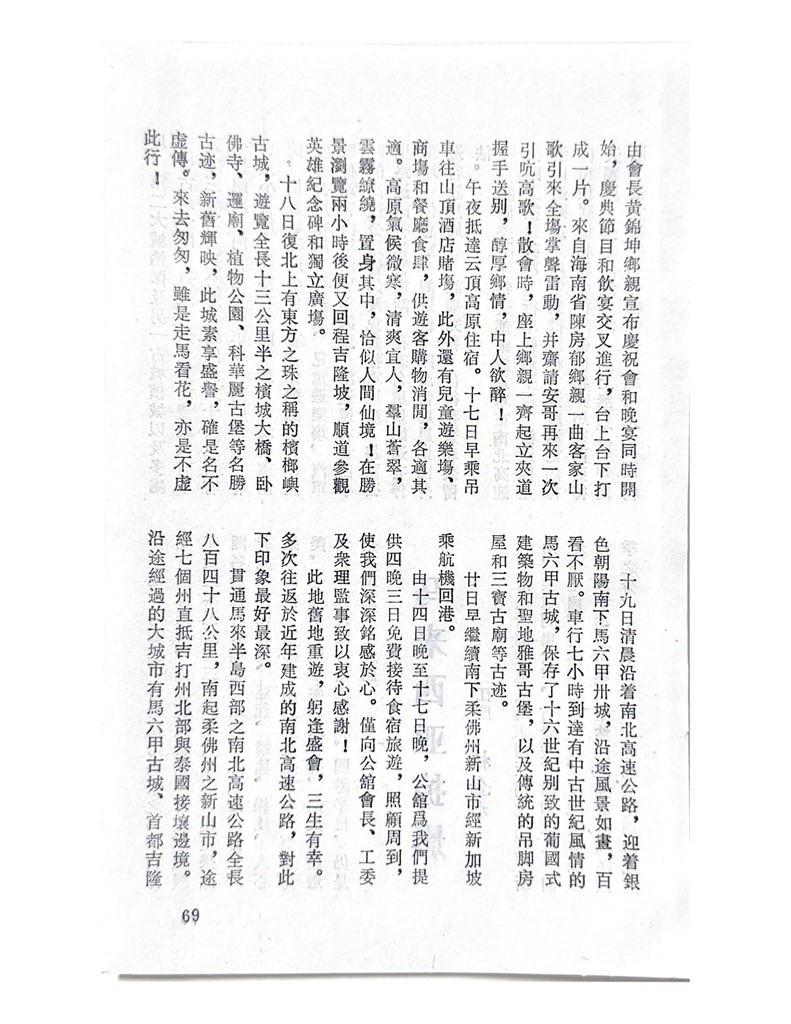 由會長黃錦坤鄉親宣布慶祝會和晚宴同時開
始，慶典節目和飲宴交叉進行，台上台下打
成一片。來自海南省陳房郁鄉親一曲客家山
歌引來全場掌聲雷動，并齋請安哥再來一次
引吭高歌！散會時，座上鄉親一齊起立夾道
握手送别，醇厚鄉情，中人欲醉！
。午夜抵達云頂高原住宿。十七日早乘吊
車往山頂酒店賭塲，此外還有兒童遊樂塲、
商塲和餐廳食肆，供遊客購物消閒，各適其
適。高原氣候微寒，清爽宜人，羣山蒼翠，
雲霧繚繞，置身其中，恰似人間仙境！在勝
景瀏覽兩小時後便又回程吉隆坡，順道參觀
英雄紀念碑和獨立廣塲。
十八日復北上有東方之珠之稱的檳榔嶼
古城，遊覽全長十三公里半之檳城大橋、卧
佛寺、暹廟、植物公園、科華麗古堡等名勝
古迹，新舊輝映，此城素享盛譽，確是名不
虛傳。來去匆匆，雖是走馬看花，亦是不虛
此行！
十九日清晨沿着南北高速公路，迎着銀
色朝陽南下馬六甲卅城，沿途風景如畫，百
看不厭。車行七小時到達有中古世紀風情的
馬六甲古城，保存了十六世紀别致的葡國式
建築物和聖地雅哥古堡，以及傳統的吊脚房
屋和三寶古廟等古迹。
廿日早繼續南下柔佛州新山市經新加坡
乘航機回港。
由十四日晚至十七日晚，公舘爲我們提
供四晚三日免費接待食宿旅遊，照顧周到，
使我們深深銘感於心。僅向公舘會長、工委
及衆理監事致以衷心感謝！
此地舊地重遊，躬逢盛會，三生有幸。
多次往返於近年建成的南北高速公路，對此
下印象最好最深。
貫通馬來半島西部之南北高速公路全長
八百四十八公里，南起柔佛州之新山市，途
經七個州直抵吉打州北部與泰國接壤邊境。
沿途經過的大城市有馬六甲古城、首都吉隆
69